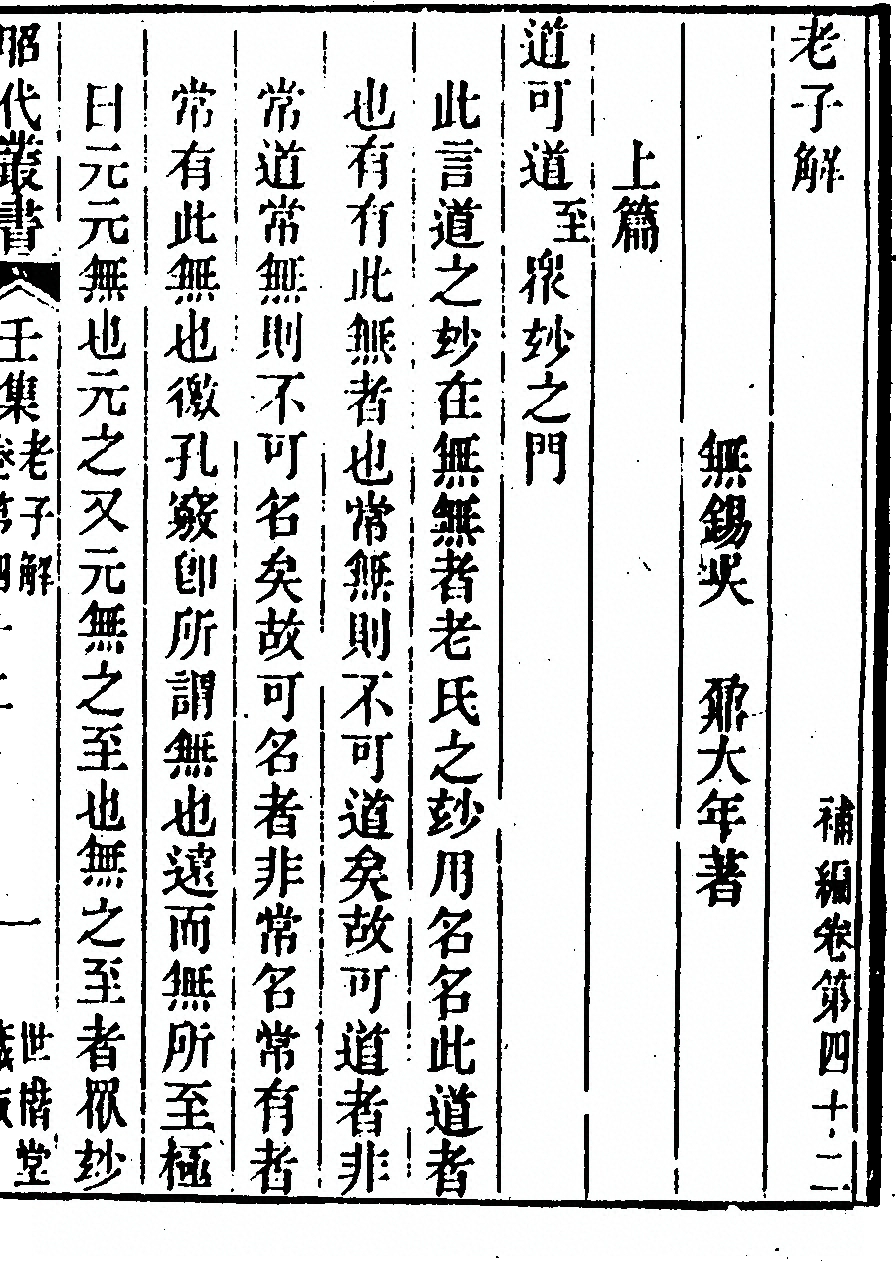 老子解 補編卷第四十二
無錫吳 鼐大年著
上篇
道可道至衆玅之門
此言道之玅在無無者老氏之玅用名名此道者
也有有此無者也常無則不可道矣故可道者非
常道常無則不可名矣故可名者非常名常有者
常有此無也徼孔竅卽所謂無也遠而無所至極
曰元元無也元之又元無之至也無之至者眾玅
昭代叢書 壬集 老子解 卷第四十二 一 世楷堂 藏板